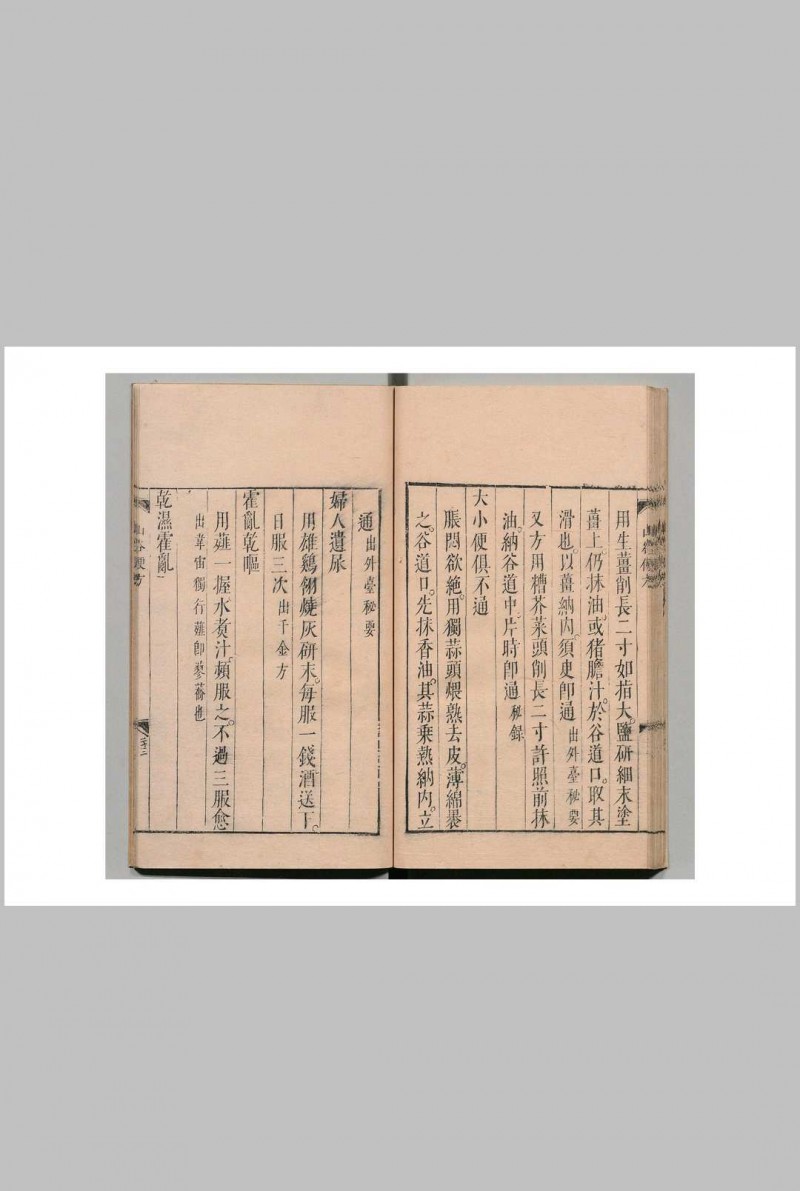 用生薑削長二寸如指大。鹽研細末塗
薑上。仍抹油。或猪膽汁。於谷道口。取其
滑也。以薑納內。須臾即通出外臺秘要
又方用糟芥菜頭削長二寸許照前抹
油。納谷道中。片時即通秘錄
大小便俱不通
脹悶欲絕。用獨蒜頭煨熟去皮。薄綿裹
之。谷道口。先抹香油。其蒜乗熱納內。立
通出外臺秘要
婦人遺尿
用雄鷄翎燒灰研末。每服一錢酒送下。
日服三次出千金方
霍亂乾嘔
用薤一握水煮汁。頻服之。不過三服愈
出韋宙獨行薤即蓼蕎也
乾濕霍亂
山谷便方